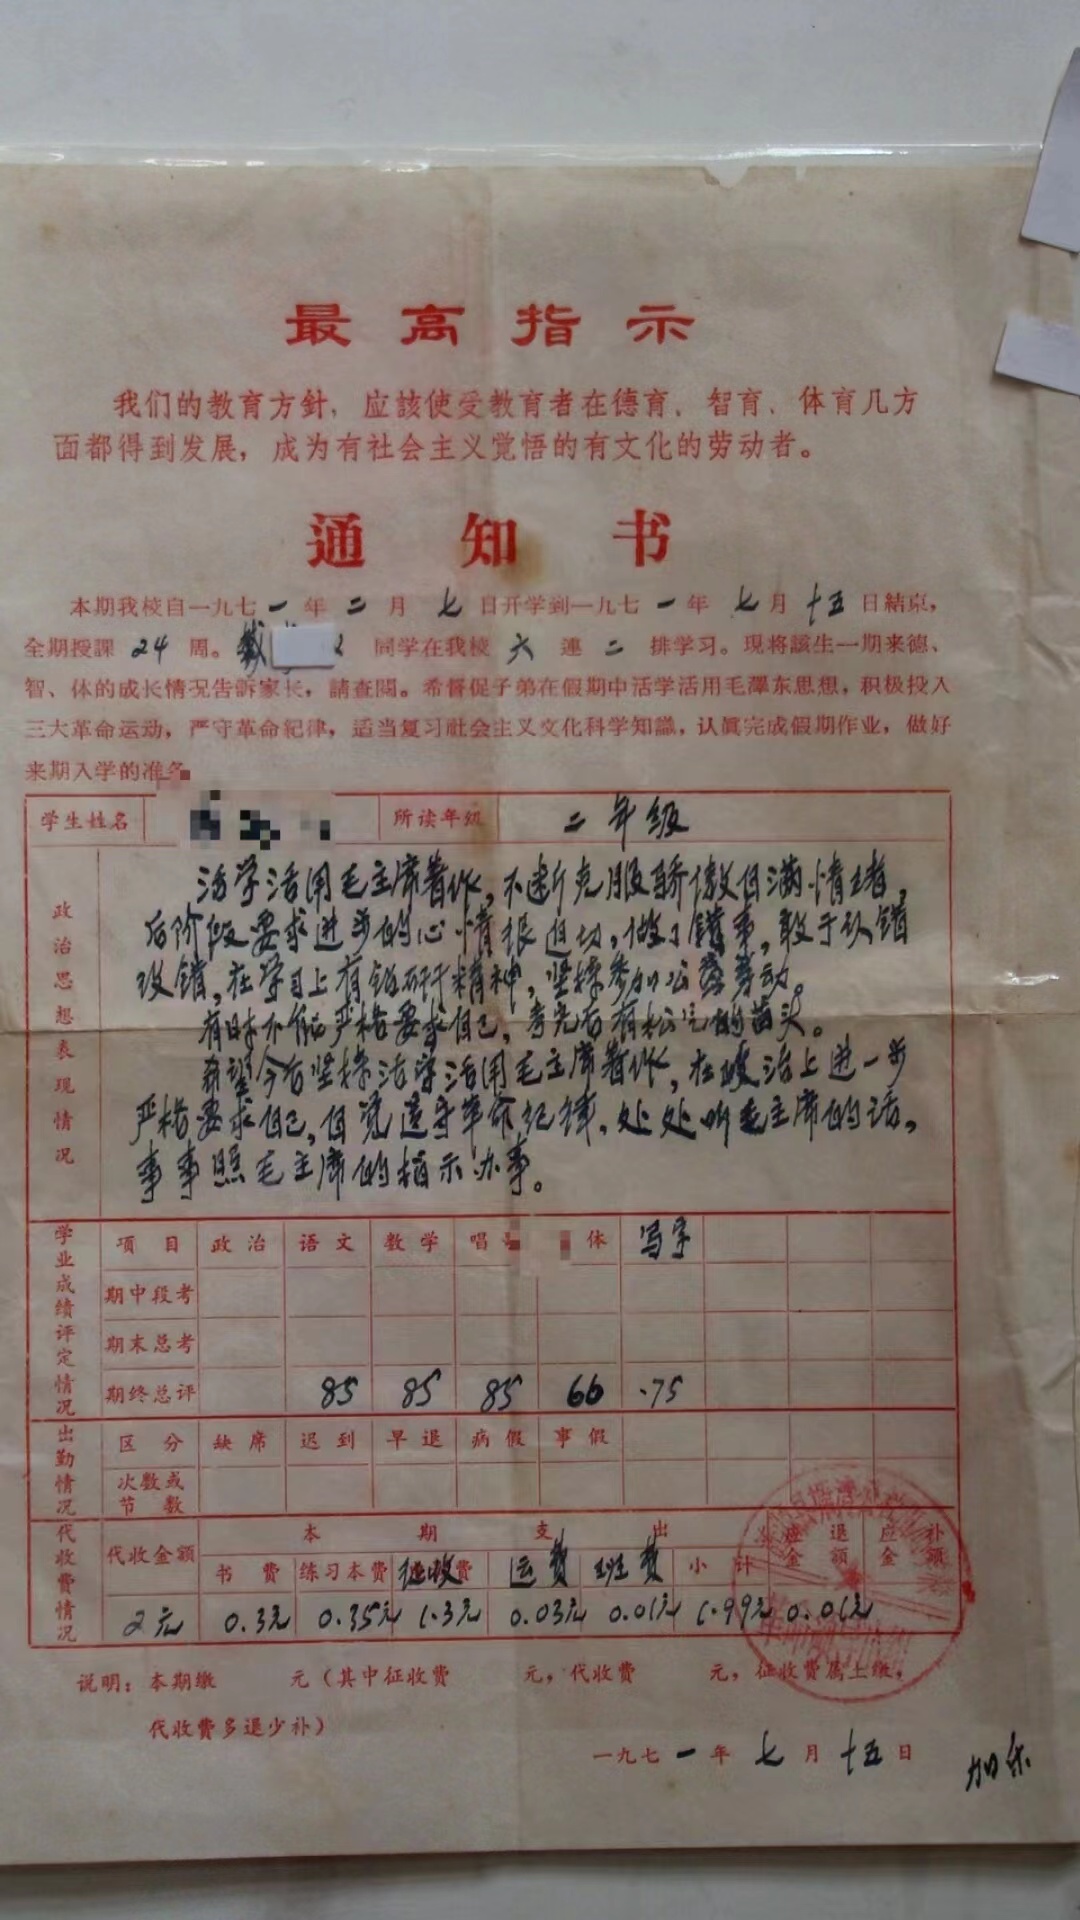 最高指示
我们的教育方針，应該使受教育者在德育、智育、体育几方
面都得到发展，成为有社会主义觉悟的有文化的劳动者。
通知书
本期我校自一九七一年二月七日开学到一九七一年七月十五日結束，
全期授課24周。戴 同学在我校六連二排学习。現将該生一期来德、
智、体的成长情况告訴家长，請查閱。希督促子弟在假期中活学活用毛澤东思想，积极投入
三大革命运动，严守革命紀律，适当复习社会主义文化科学知識，认眞完成假期作业，做好
来期入学的准备
学生姓名 所读年级 二年级
政治思想表现情况
活学活用毛主席著作，不断克服骄傲自满情绪，
后阶段要求进步的心情很迫切，做了错事，敢于认错
改错，在学习上有钻研精神，坚持参加公益劳动。
有时不能严格要求自己，考完后有松气的苗头。
希望今后坚持活学活用毛主席著作，在政治上进一步
严格要求自己，自觉遵守革命纪律，处处听毛主席的话，
事事照毛主席的指示办事。
学业成绩评定情况
项目 政治 语文 数学 唱 体 写字
期中段考
期末总考
期终总评 85 85 85 66 75
出勤情况
区分 缺席 迟到 早退 病假 事假
次数或
节数
代收费情况
代收金额 本期支出 应退金额 应补金额
书费 练习本费 征收费 运费 班费 小计
2元 0.3元 0.35元 1.3元 0.03元 0.01元 1.99元 0.01元
说明：本期缴 元（其中征收费 元，代收费 元，征收费属上缴，
代收费多退少补）
一九七一年七月十五日